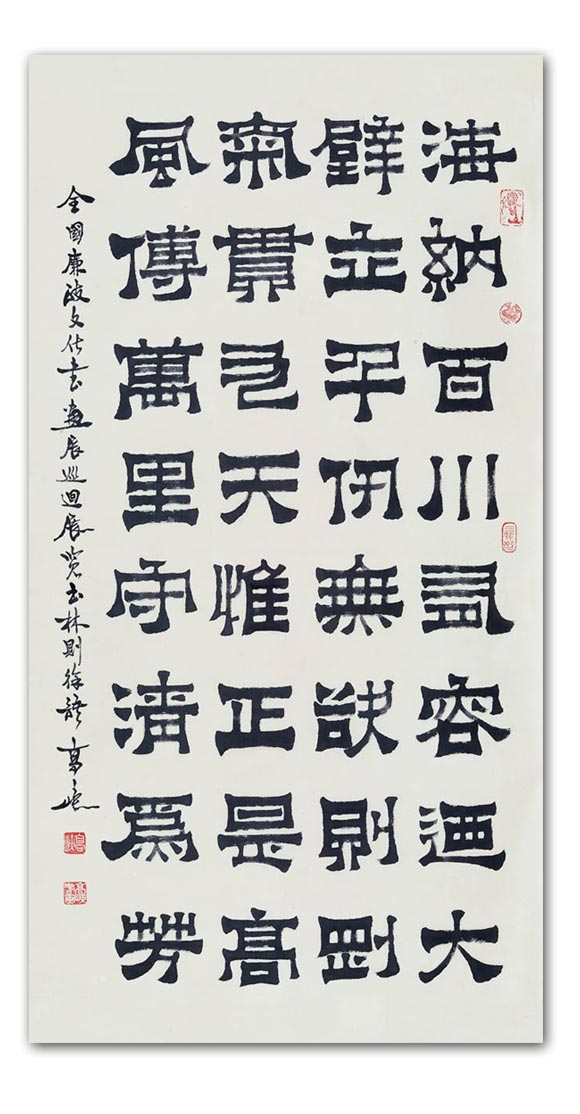 海納百川有容迺大
壁立千仞無欲則剛
氣貫九天惟正是高
風傳萬里守清爲芳
全國廉政文化书畫展巡迴展览书林則徐語 高